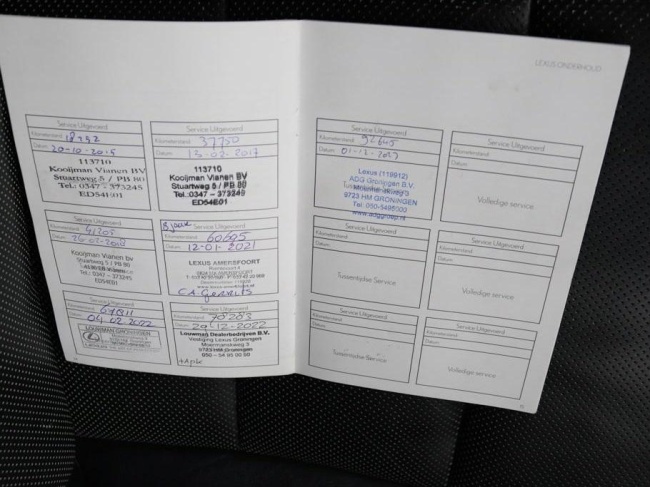 LEXUS ONDERHOUD
Service Uitgevoerd
Kilometerstand
Datum 20-10-2015
113710
Kooijman Vianen BV
Stuartweg 5 / PB 80
Tel.: 0347 - 373245
ED54E01
Service Uitgevoerd
Kilometerstand 37750
Datum 13-02-2017
113710
Kooijman Vianen BV
Stuartweg 5 / PB 80
Tel.: 0347 - 373245
ED54E01
Service Uitgevoerd
Kilometerstand 41205
Datum
Kooijman Vianen bv
Stuartweg 5 / PB 80
Tel.: 0347 - 373245
ED54E01
Service Uitgevoerd
Kilometerstand 60605
Datum 12-01-2021
LEXUS AMERSFOORT
Service Uitgevoerd
Kilometerstand
Datum 04-02-2022
LOUWMAN GRONINGEN
Service Uitgevoerd
Kilometerstand 70283
Datum 29-12-2022
Louwman Dealerbedrijven B.V.
Vestiging Lexus Groningen
Moermanskweg 3
9723 HM Groningen
050 - 54 95 00 50
+Apk
Service Uitgevoerd
Kilometerstand 92645
Datum 01-12-2023
Lexus (119912)
ADG Groningen B.V.
Tussentijdse Service
Moermanskweg 3
9723 HM GRONINGEN
Service Uitgevoerd
Kilometerstand
Datum
Volledige service
Service Uitgevoerd
Kilometerstand
Datum
Tussentijdse Service
Service Uitgevoerd
Kilometerstand
Datum
Volledige service
Service Uitgevoerd
Kilometerstand
Datum
Tussentijdse Service
Service Uitgevoerd
Kilometerstand
Datum
Volledige service